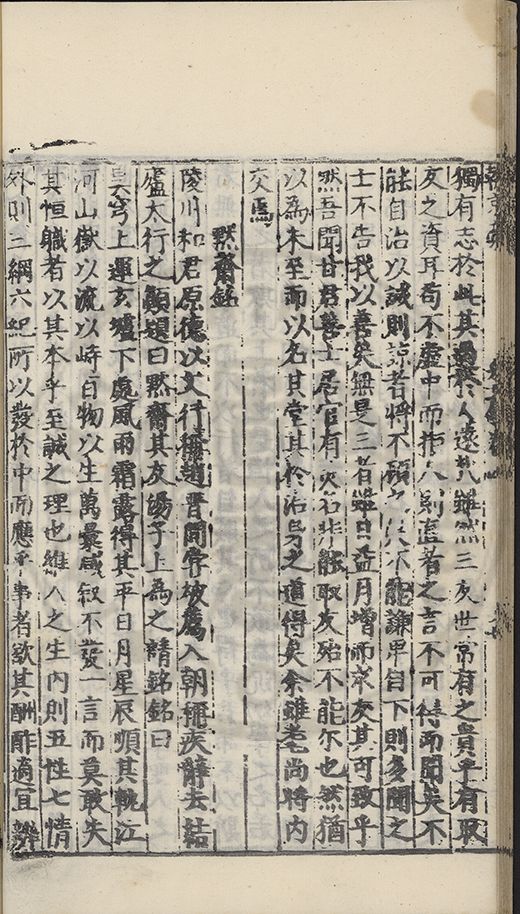 獨有志於此其過於人遠哉雖然三友世常有之貴乎有取
友之資耳苟不虛中而拒人則直者之言不可得而聞矣不
能自治以誠則諒者將不顧矣不能謙卑自下則多聞之
士不告我以善矣無是三者雖日益月增而求友其可致乎
然吾聞甘君善士居官有美名非能取友殆不能尔也然猶
以為未至而以名其堂其於治身之道得矣余雖耄尚將內
交焉
默齋銘
陵川和君原德以文行稱趙晉間嘗被薦入朝稱疾辭去結
廬太行之顛題曰默齋其友湯子上為之請銘銘曰
昊穹上運玄壚下處風雨霜露得其平日月星辰順其軌江
河山嶽以流以峙百物以生萬彙咸叙不發一言而莫敢失
其恒職者以其本乎至誠之理也維人之生內則五性七情
外則三綱六紀所以發於中而應乎事者欲其酬酢適宜辨